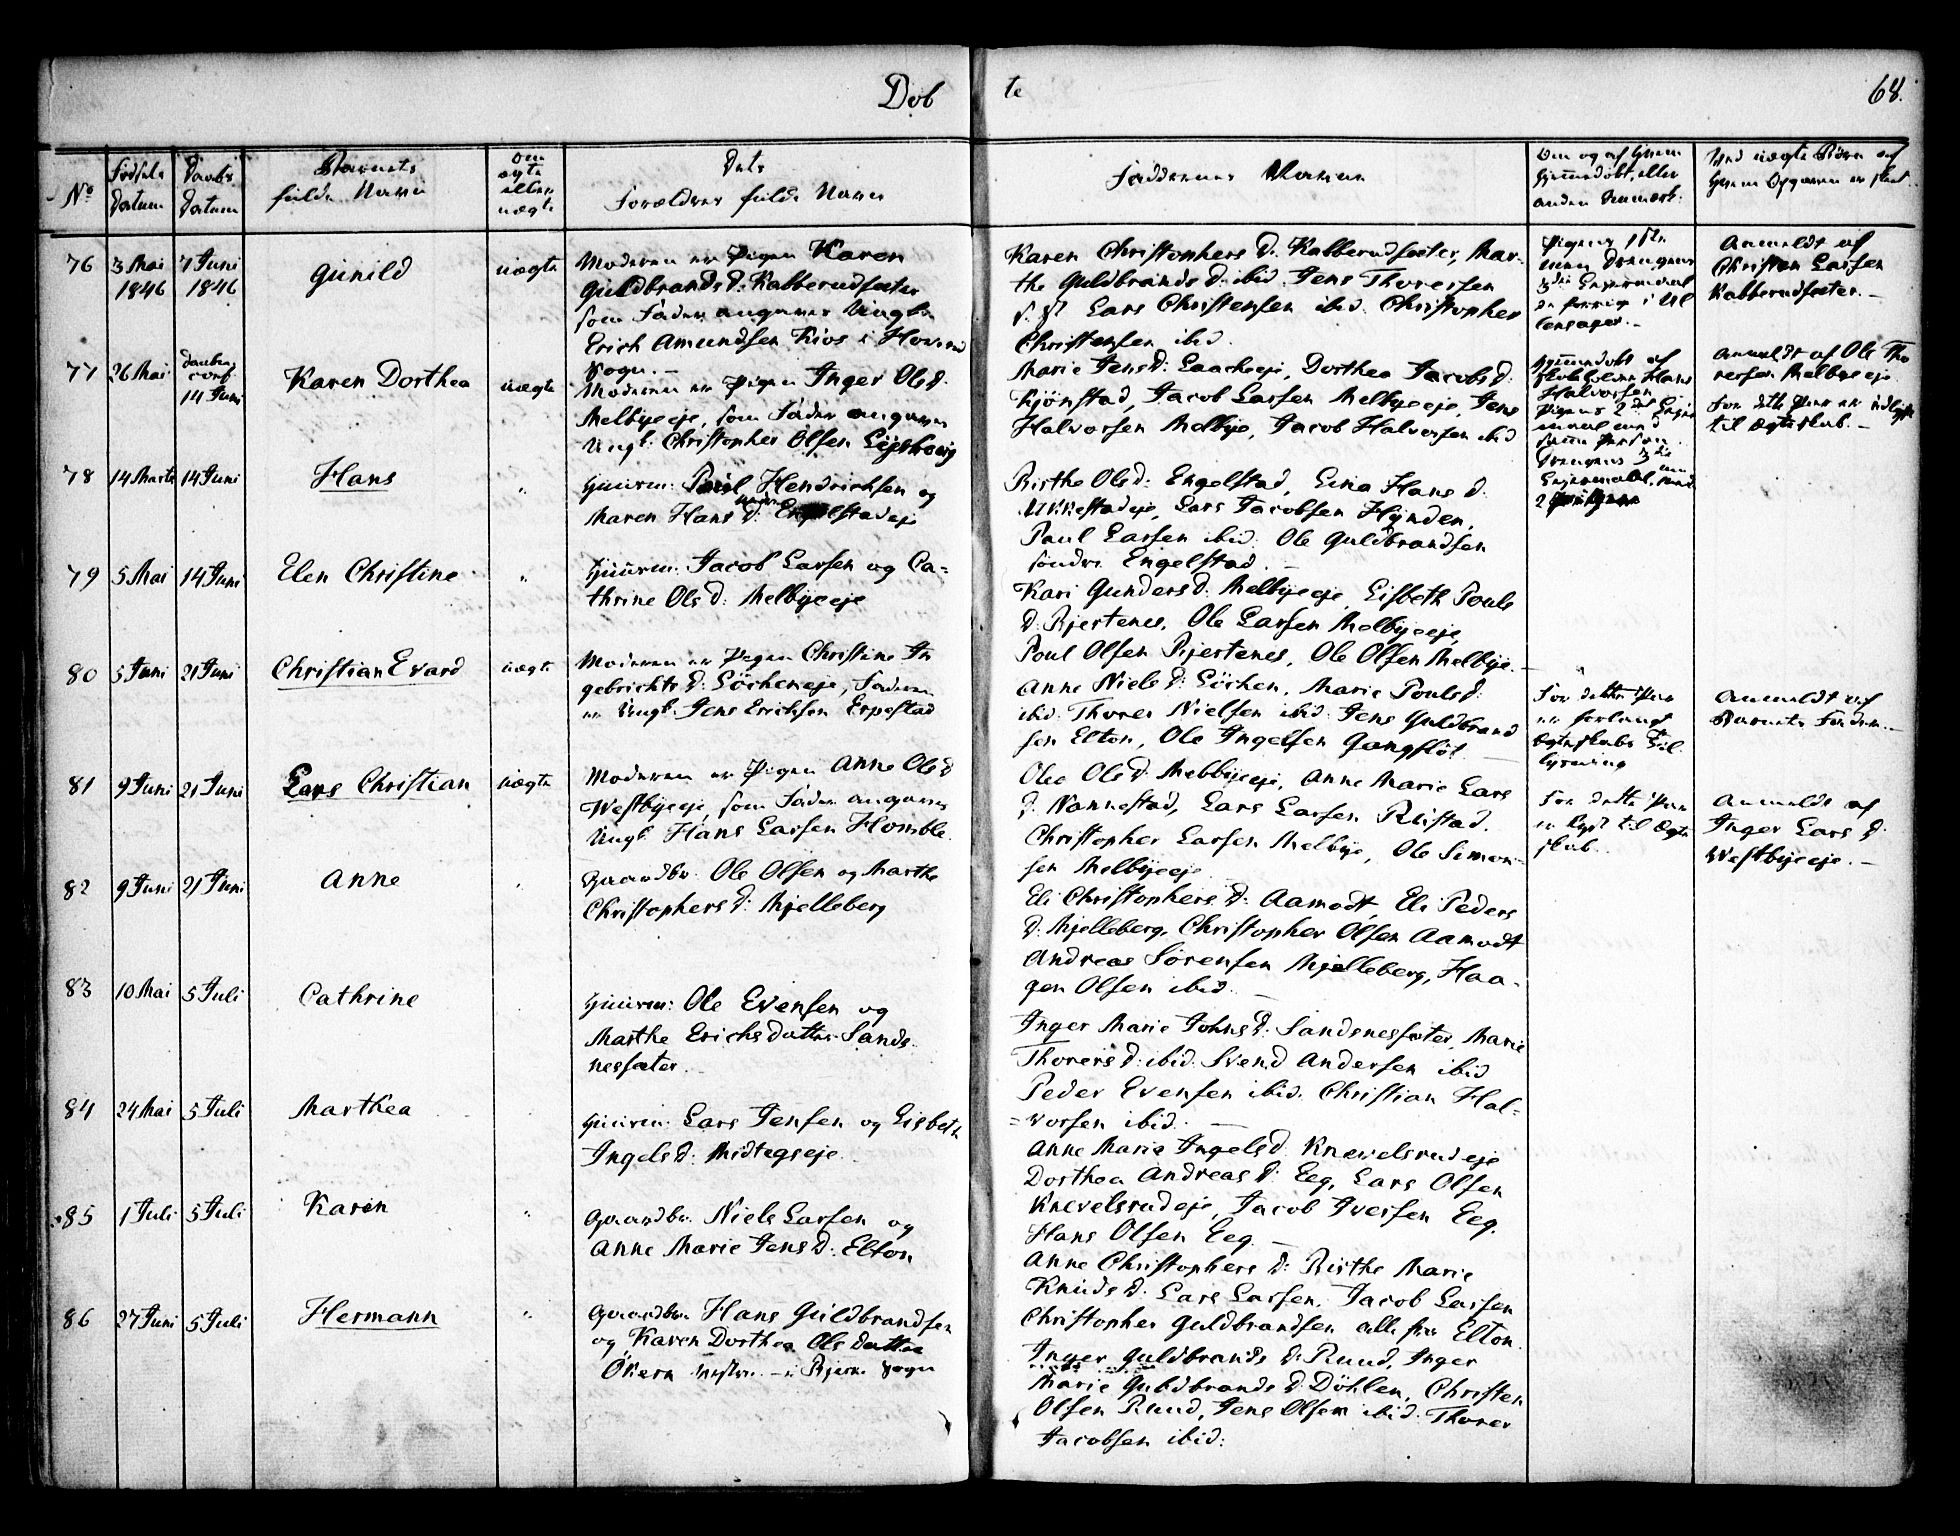 Døb
te
68.
No
Fødsels Datum
Daabs Datum
Barnets fulde Navn
Om ægte eller uægte
Dets Forældres fulde Navn
Faddernes Navne
Om og af hvem hjemmedøbt, eller anden Anmærk:
Ved uægte Børn af hvem Opgaven er skeet
76
3 Mai 1846
7 Juni 1846
Gunild
uægte
Moderen er Pigen Karen
Guldbrands D: Kabberudsæter
som Fader angaves Ungk.
Erich Amundsen Kios i Hovind
Sogn.
Karen Christophers D. Kabberudsæter, Mar-
the Guldbrands D: ibid. Jens Thoresen
Lars Christensen ibid. Christopher
Christensen ibid.
Anmeldt af
Christen Larsen
Kabberudsæter. –
77
26 Mai
14 Juni
Karen Dorthea
uægte
Moderen er Pigen Inger Ols D:
Melbyeeje, som Fader angaves
Ungk: Christopher Olsen
Marie Jens D: Laacheeje, Dorthea Jacobs D:
Kjønstad, Jacob Larsen Melbyeeje, Jens
Halvorsen Melbye, Jacob Halvorsen ibid
Hjemmedøbt af
Skoleholder Hans
Halvorsen
Pigens 2det Leier
maal med
samme Person.
Anmeldt af Ole Tho
resen Melbyeeje
For dette Par er udlyst
til Ægteskab. –
78
14 Marts
14 Juni
Hans
"
Huusm: Poul Hendrichsen og
Maren Hans D: Engelstadeje
Birthe Ols D: Engelstad, Lina Hans D:
Ukkestadeje, Lars Jacobsen Hynden,
Paul Larsen ibid. Ole Guldbrandsen
søndre Engelstad. –
79
5 Mai
14 Juni
Elen Christine
"
Huusm: Jacob Larsen og Ca-
thrine Ols D: Melbyeeje
Kari Gunders D: Melbyeeje, Lisbeth Pouls
D: Bjertenes, Ole Larsen Melbyeeje,
Poul Olsen Bjertenes, Ole Olsen Melbye. –
80
5 Juni
21 Juni
Christian Evard
uægte
Moderen er Pigen Christine In
gebrichts D: Löcheneje, Faderen
er Ungk. Jens Erichsen Erpestad
Anne Niels D: Löchen, Marie Pouls D:
ibid. Thorer Nielsen ibid. Jens Guldbrand
sen Elton, Ole Ingelsen Gangflöt. –
For dette Par
er forlangt
Ægteskabs Til
lysning
Anmeldt af
Barnets Fader. –
81
9 Juni
21 Juni
Lars Christian
uægte
Moderen er Pigen Anne Ols D
Westbyeeje, som Fader angaves
Ungk Hans Larsen Homble.
Olea Ols D: Melbyeeje, Anne Marie Lars
D: Nannestad, Lars Larsen Rustad.
Christopher Larsen Melbye, Ole Simon-
sen Melbyeeje
For dette Par
er lyst til Ægte
skab.
Anmeldt af
Inger Lars D:
Westbyeeje. –
82
9 Juni
21 Juni
Anne
"
Gaardbr. Ole Olsen og Marthe
Christophers D: Mjelleberg
Eli Christophers D: Aamodt, Eli Peders
D: Mjelleberg, Christopher Olsen Aamodt
Andreas Sörensen Mjelleberg, Haa-
gen Olsen ibid. –
83
10 Mai
5 Juli
Cathrine
Huusm: Ole Evensen og
Marthe Erichsdatter Sands-
nessæter.
Inger Marie Johns D: Sandsnessæter, Marie
Thorers D: ibid. Svend Andersen ibid
Peder Evensen ibid. Christian Hal-
=vorsen ibid. –
84
24 Mai
5 Juli
Marthea
Huusm: Lars Jensen og Lisbeth
Ingels D: Midtegseje.
Anne Marie Ingels D. Knevelsrudeje
Dorthea Andreas D: Eeg, Lars Olsen
Knevelsrudeje, Jacob Iversen Eeg.
Hans Olsen Eeg. –
85
1 Juli
5 Juli
Karen
"
Gaardbr. Niels Larsen og
Anne Marie Jens D: Elton
Anne Christophers D: Birthe Marie
Knuds D: Lars Larsen, Jacob Larsen
Christopher Guldbrandsen alle fra Elton.
86
27 Juni
5 Juli
Hermann
"
Gaardbr. Hans Guldbrandsen
og Karen Dorthea Ols Datter
Ökern i Bjerke Sogn
Inger Guldbrands D: Ruud, Inger
Marie Guldbrands D: Döhlen, Christen
Olsen Ruud, Jens Olsen ibid. Thorer
Jacobsen ibid: